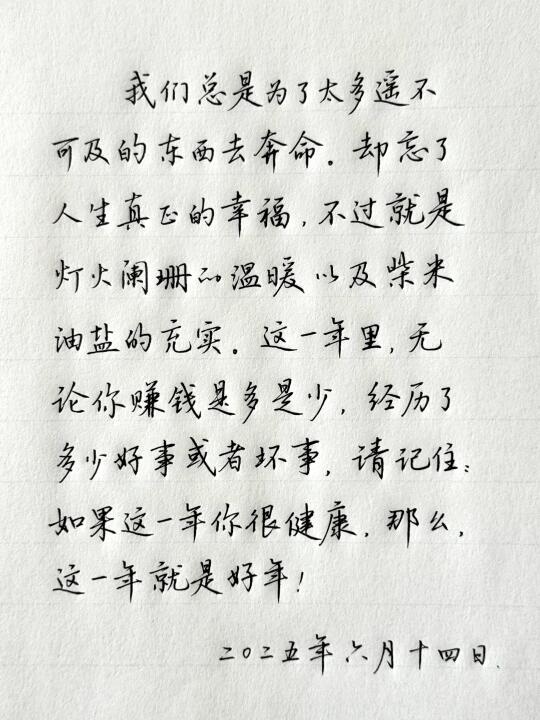 我们总是为了太多遥不
可及的东西去奔命。却忘了
人生真正的幸福，不过就是
灯火阑珊的温暖以及柴米
油盐的充实。这一年里，无
论你赚钱是多是少，经历了
多少好事或者坏事，请记住：
如果这一年你很健康，那么，
这一年就是好年！
二〇二五年六月十四日.